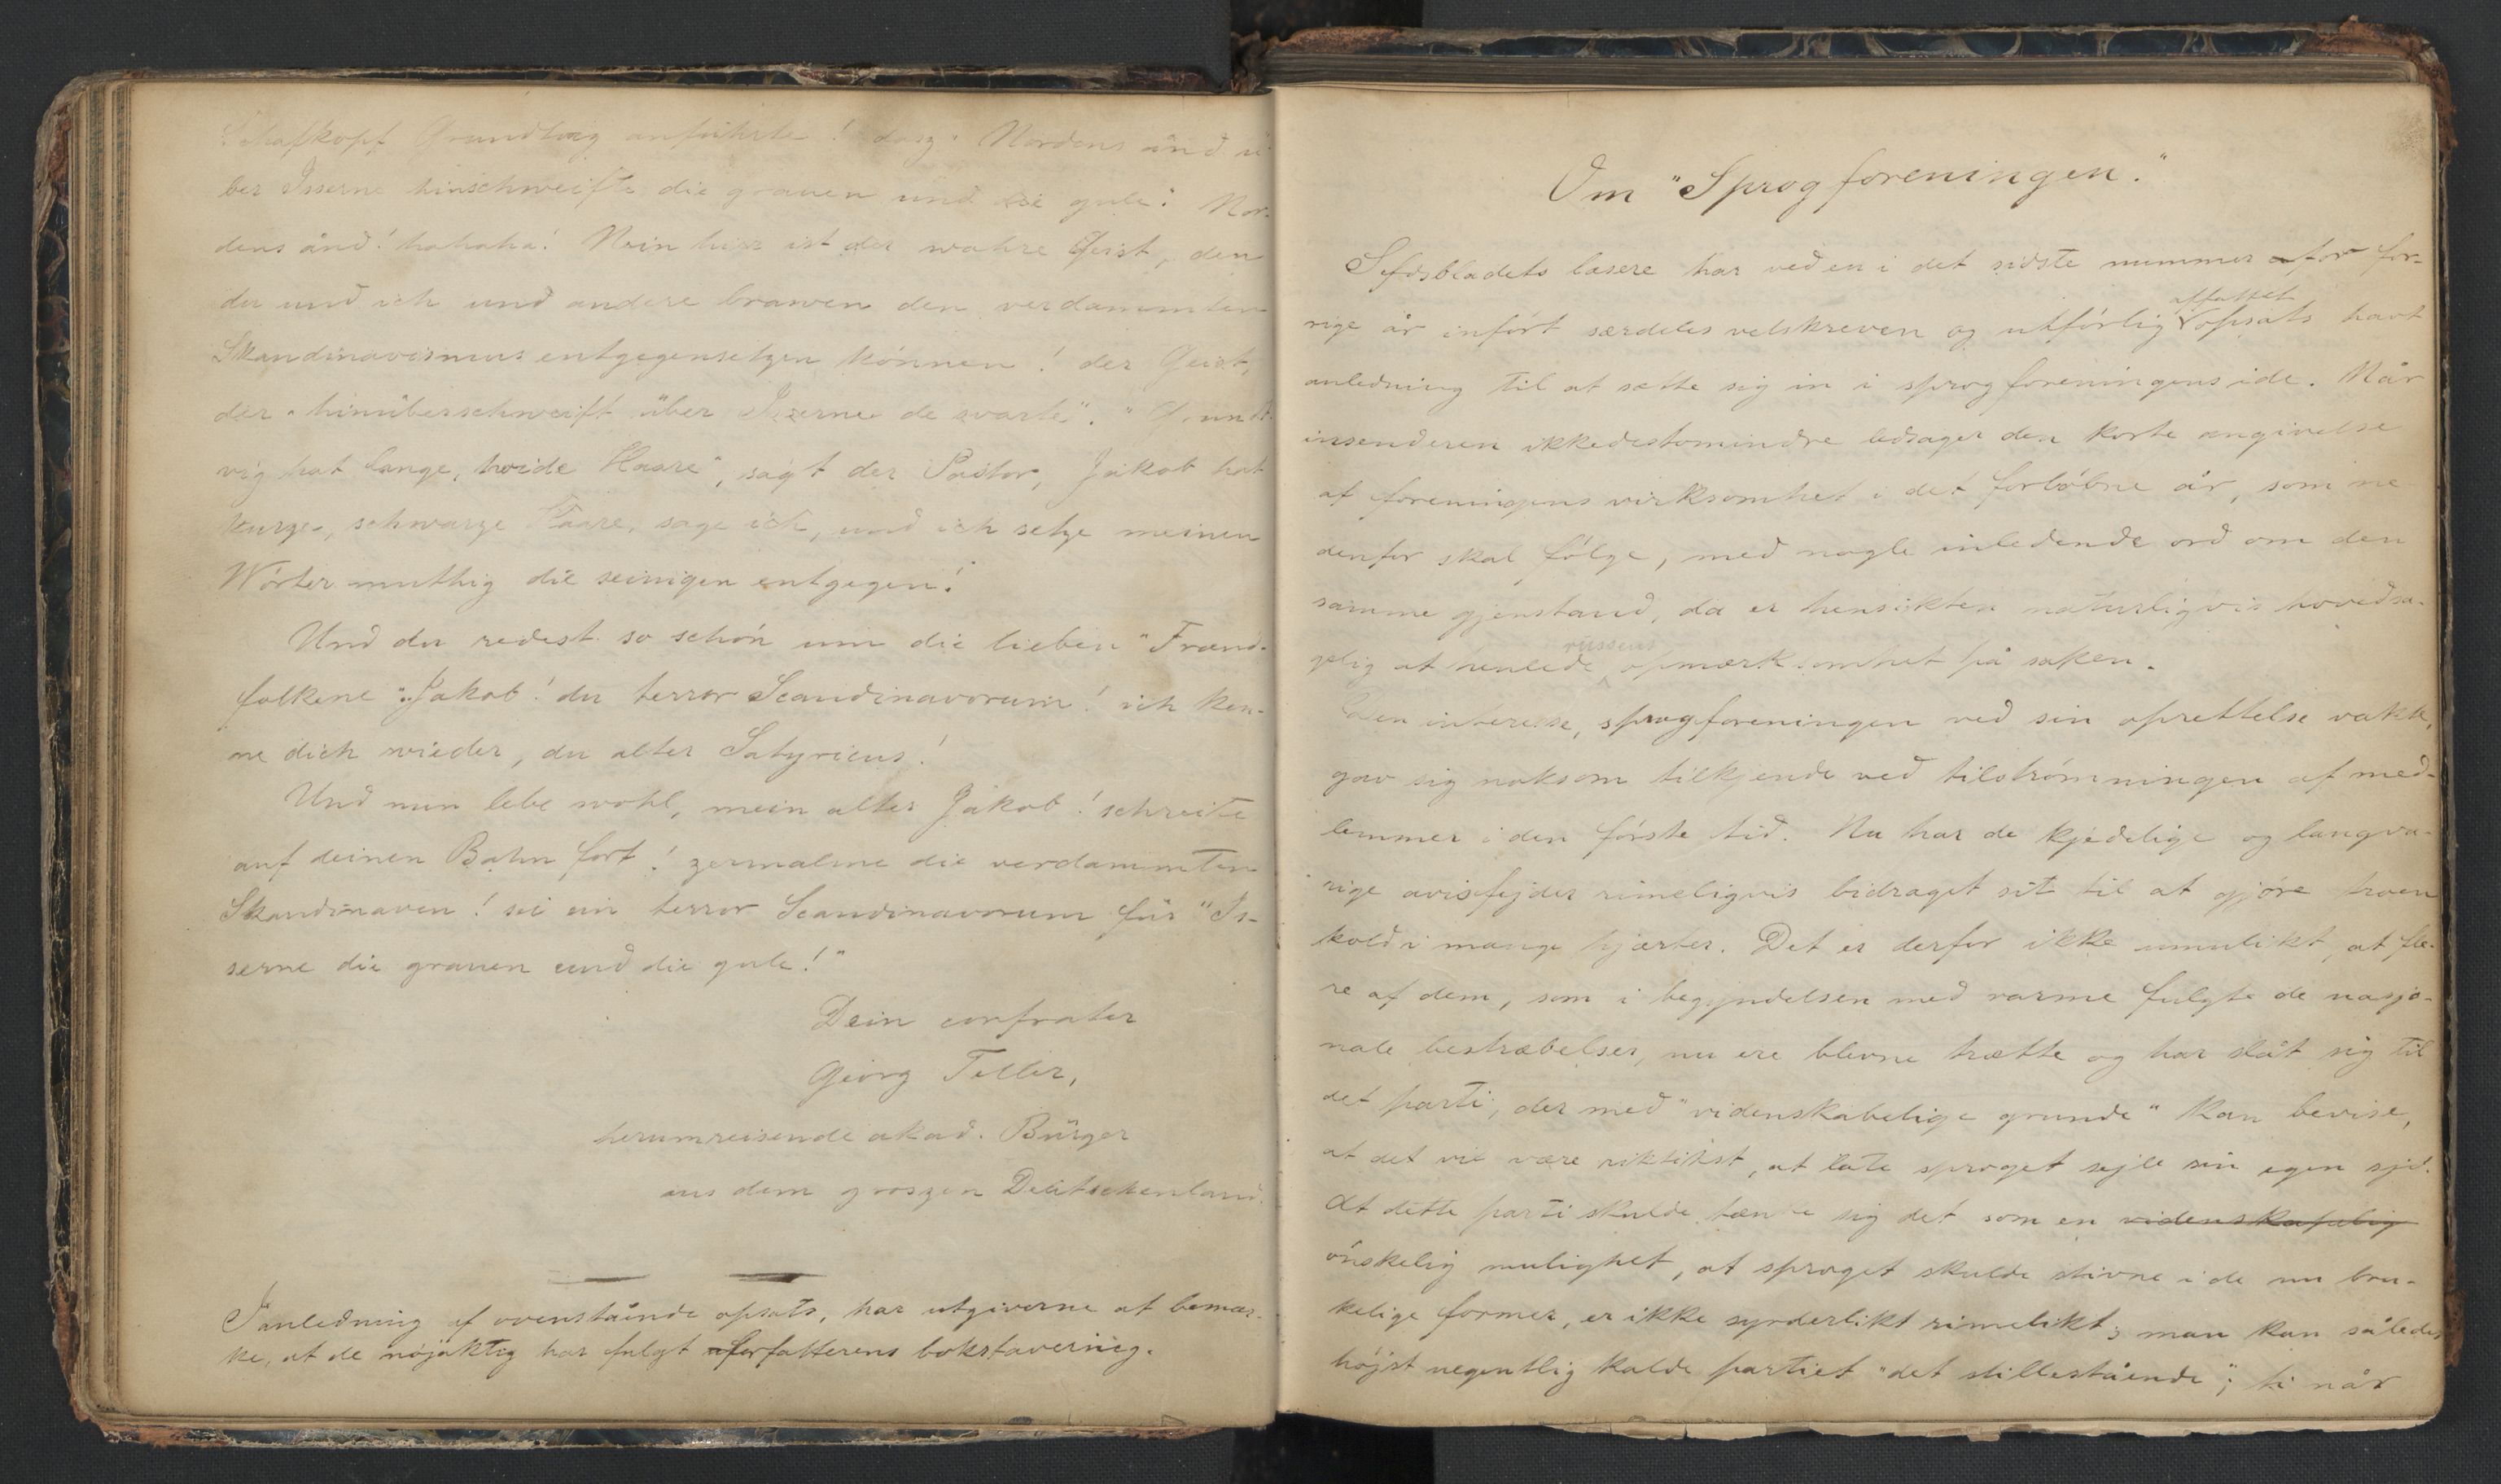 Schafkopf Grundtvig anführte! dasz "Nordens ånd ü-
ber Isserne hinschweifte die grauen und die gule." Nor-
dens ånd! hahaha! Nein hier ist der wahre Geist, den
du und ich und andere brawen den verdammten
Skandinavismus entgegensetzen können! der Geist,
der "hinüberschweift über Isserne de svarte". "Grundt-
vig hat lange, hvide Haare", sagt der Pastor, Jakob hat
kurze, schwarze Haare, sage ich, und ich setze meinen
Wörter muthig die seinigen entgegen!
Und du redest so schön um die lieben "Frænd-
folkene". Jakob! du terror Scandinavorum! ich ken-
ne dich wieder, du alter Satyricus!
Und nun lebe wohl, mein alter Jakob! schreite
auf deinen Bahn fort! zermalme die verdammten
Skandinaven! sei ein terror Scandinavorum für "Is-
serne die grauen und die gule!"
Dein confrater
Georg Teller,
herumreisende akad. Bürger
aus dem groszen Deutschenland.
I anledning af ovenstående opsats, har utgiverne at bemær-
ke, at de nöjaktig har fulgt forfatterens bokstavering.
Om "Sprogforeningen".
Sefdsbladets læsere har ved en i det sidste nummer for for-
rige år infört særdeles velskreven og utförlig affattet opsats havt
anledning til at sætte sig in i sprogforeningens ide. Når
insenderen ikkedestomindre ledsager den korte angivelse
af foreningens virksomhet i det forlöbne år, som ne-
denfor skal fölge, med nogle inledende ord om den
samme gjenstand, da er hensikten naturligvis hovedsa-
gelig at henlede russens opmærksomhet på saken.
Den interesse, sprogforeningen ved sin oprettelse vakte,
gav sig noksom tilkjende ved tilströmningen af med-
lemmer i den förste tid. Nu har de kjedelige og langva-
rige avisfejder rimeligvis bidraget sit til at gjöre troen
kold i mange hjærter. Det er derfor ikke umulikt, at fle-
re af dem, som i begyndelsen med varme fulgte de nasjo-
nale bestræbelser, nu ere blevne trætte og har slåt sig til
det parti, der med "videnskabelige grunde" kan bevise,
at det vil være riktikst, at late sproget sejle sin egen sjö.
At dette parti skulde tænke sig det som en videnskapelig
önskelig mulighet, at sproget skulde stivne i de nu bru-
kelige former, er ikke synderlikt rimelikt; man kan således
höjst uegentlig kalde partiet "det stillestående"; ti når